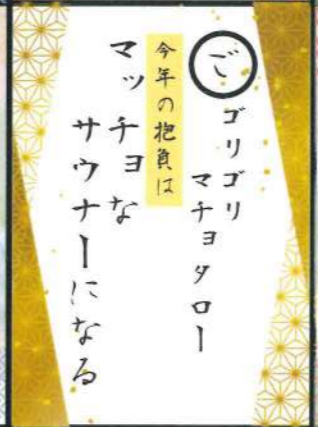 ご
ゴリゴリ
マチョタロー
今年の抱負は
マッチョな
サウナーになる